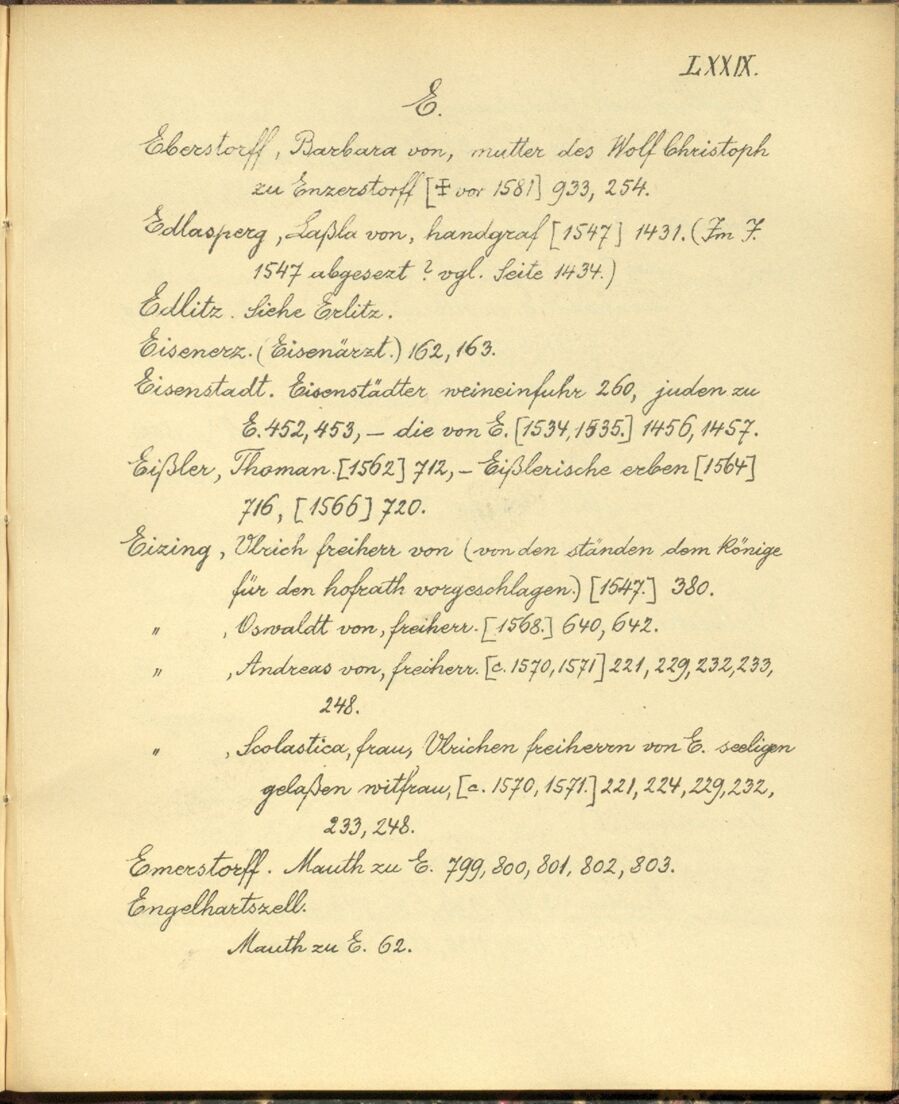 LXXIX.
E.
Eberstorff, Barbara von, mutter des Wolf Christoph
zu Enzerstorff [‡ vor 1581] 933, 254.
Edlasperg, Laßla von, handgraf [1547] 1431. (Im J.
1547 abgesezt? vgl. Seite 1434.)
Edlitz. Siehe Erlitz.
Eisenerz. (Eisenärzt.) 162, 163.
Eisenstadt. Eisenstädter weineinfuhr 260, juden zu
E. 452, 453, – die von E. [1534, 1535.] 1456, 1457.
Eißler, Thoman. [1562] 712, – Eißlerische erben [1564]
716, [1566] 720.
Eizing, Ulrich freiherr von (von den ständen dem könige
für den hofrath vorgeschlagen.) [1547.] 380.
„ , Oswaldt von, freiherr. [1568.] 640, 642.
„ , Andreas von, freiherr. [c. 1570, 1571] 221, 229, 232, 233,
248.
„ , Scolastica, frau, Ulrichen freiherrn von E. seeligen
gelaßen witfrau, [c. 1570, 1571.] 221, 224, 229, 232,
233, 248.
Emerstorff. Mauth zu E. 799, 800, 801, 802, 803.
Engelhartszell.
Mauth zu E. 62.